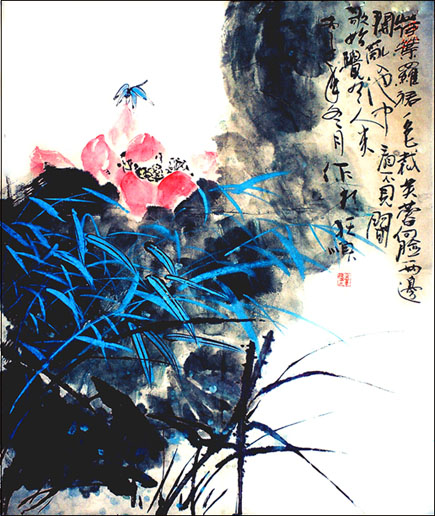 荷葉羅裙一色裁芙蓉向臉兩邊
開亂入池中看不見聞
歌始覺有人來
年冬月作於